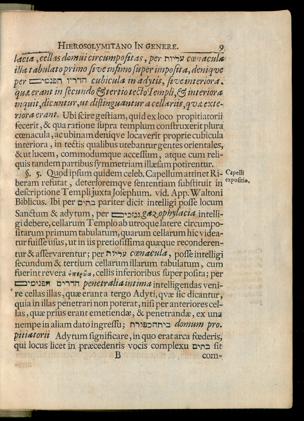 HIEROSOLYMITANO IN GENERE. 9
lacta, cellas domui circumpositas, per עליות cœnacula
illa tabulato primo sive infimo super imposita, denique
per חדריו הפנימים cubicula in adytis, sive interiora,
quæ erant in secundo & tertio tecto Templi, & interiora
inquit, dicuntur, ut distinguantur a cellariis, quæ exte-
riora erant. Ubi scire gestiam, quid ex loco propitiatorii
fecerit, & qua ratione supra templum construxerit plura
cœnacula, ac ubinam denique locaverit proprie cubicula
interiora, in tectis qualibus utebantur gentes orientales,
& ut lucem, commodumque accessum, atque cum reli-
quis tandem partibus symmetriam illæsam potirentur.
§. 5. Quod ipsum quidem celeb. Capellum attinet Ri-
beram refutat, deterioremque sententiam substituit in
descriptione Templi juxta Josephum. vid. App. Waltoni
Biblicus. Ibi per בתים pariter dicit intelligi posse locum
Sanctum & adytum, per גנזכים gazophylacia intelli-
gi debere, cellarum Templo ab utroque latere circumpo-
sitarum primum tabulatum, quarum cellarum hic vide-
tur fuisse usus, ut in iis preciosissima quæque reconderen-
tur & asservarentur; per עליות cœnacula, posse intelligi
secundum & tertium cellarum illarum tabulatum, cum
fuerint revera ὑπερῷα, cellis inferioribus superposita; per
חדרים הפנימים penetralia intima intelligendas veni-
re cellas illas, quæ erant a tergo Adyti, quæ sic dicantur,
quia in illas penetrari non poterat, nisi per anteriores cel-
las, quæ prius erant emetiendæ, & penetrandæ, ex una
nempe in aliam dato ingressu; ביתהכפורת domum pro-
pitiatorii Adytum significare, in quo erat arca fœderis,
qui locus licet in præcedentis vocis complexu בתים sit
B com-
Capelli
expositio.